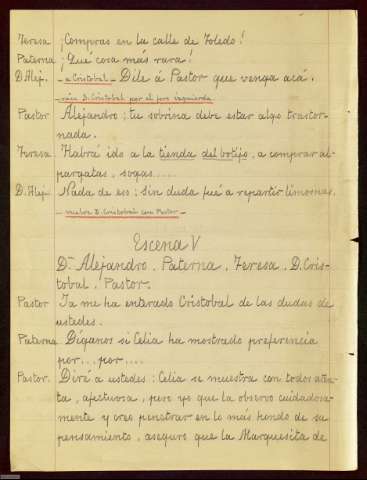 Teresa ¡Compras en la calle de Toledo!
Paterna ¡Qué cosa más rara!
D. Alej. - a Cristobal - Dile á Pastor que venga acá.
- váse D. Cristobal por el foro izquierda
Pastor Alejandro; tu sobrina debe estar algo trastor-
nada.
Teresa Habrá ido a la tienda del botijo, a comprar al-
pargatas, sogas.....
D. Alej. Nada de eso: Sin duda fué a repartir limosnas.
- vuelve D. Cristobal con Pastor -
Escena V
Dn Alejandro, Paterna, Teresa, D. Cris-
tobal, Pastor.
Pastor Ya me ha enterado Cristobal de las dudas de
ustedes.
Paterna Díganos si Celia ha mostrado preferencia
por... por....
Pastor. Diré a ustedes: Celia se muestra con todos aten-
ta, afectuosa, pero yo que la observo cuidadosa-
mente y creo penetrar en lo más hondo de su
pensamiento, aseguro que la Marquesita de